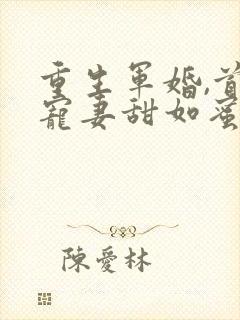 重生軍婚,首
寵妻甜如蜜
陳愛林